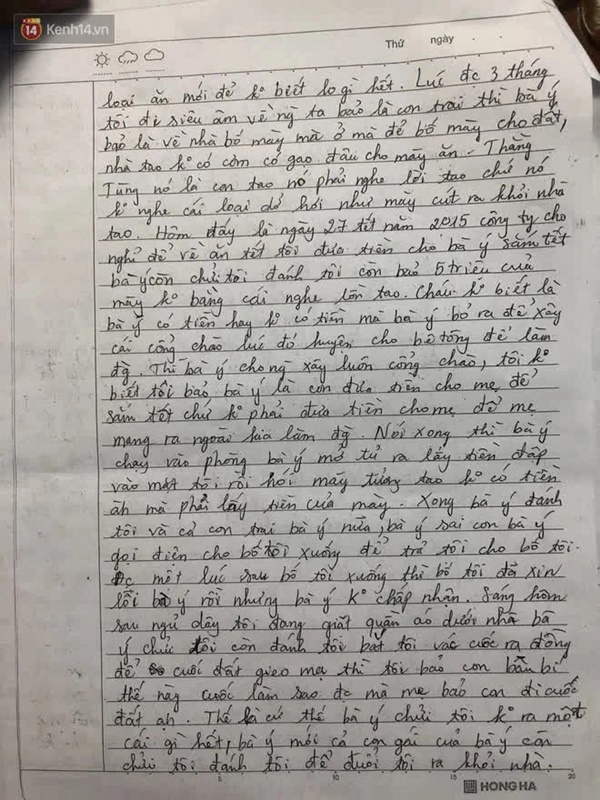 14 Kenh14.vn
Thứ ngày
loại ăn mới đẻ k° biết lo gì hết. Lúc đc 3 tháng
tôi đi siêu âm về ng ta bảo là con trai thì bà ý
bảo là về nhà bố mày mà ở mà đẻ bố mày cho đất,
nhà tao k° có cơm có gạo đâu cho mày ăn. Thằng
Tùng nó là con tao nó phải nghe lời tao chứ nó
k° nghe cái loại dở hơi như mày cút ra khỏi nhà
tao. Hôm đấy là ngày 27 tết năm 2015 công ty cho
nghỉ để về ăn tết tôi đưa tiền cho bà ý sắm tết
bà ý còn chửi tôi đánh tôi còn bảo 5 triệu của
mày k° bằng cái nghe lồn tao. Cháu k° biết là
bà ý có tiền hay k° có tiền mà bà ý bỏ ra để xây
cái cổng chào lúc đó huyện cho bê tông để làm
đg. Thì bà ý cho ng xây luôn cổng chào, tôi k°
biết tôi bảo bà ý là con đưa tiền cho mẹ để
sắm tết chứ k° phải đưa tiền cho mẹ để mẹ
mang ra ngoài kia làm đg. Nói xong thì bà ý
chạy vào phòng bà ý mở tủ ra lấy tiền đập
vào mặt tôi rồi hỏi mày tưởng tao k° có tiền
àh mà phải lấy tiền của mày. Xong bà ý đánh
tôi và cả con trai bà ý nữa, bà ý sai con bà ý
gọi điện cho bố tôi xuống để trả tôi cho bố tôi.
Đc một lúc sau bố tôi xuống thì bố tôi đã xin
lỗi bà ý rồi nhưng bà ý k° chấp nhận. Sáng hôm
sau ngủ dậy tôi đang giặt quần áo dưới nhà bà
ý chửi tôi còn đánh tôi bắt tôi vác cuốc ra đồng
để cuốc đất gieo mạ thì tôi bảo con bầu bí
thế này cuốc làm sao đc mà mẹ bảo con đi cuốc
đất ạh. Thế là cứ thế bà ý chửi tôi k° ra một
cái gì hết, bà ý mới cả con gái của bà ý còn
chửi tôi đánh tôi để đuổi tôi ra khỏi nhà.
5 10 15 20
HONG HA